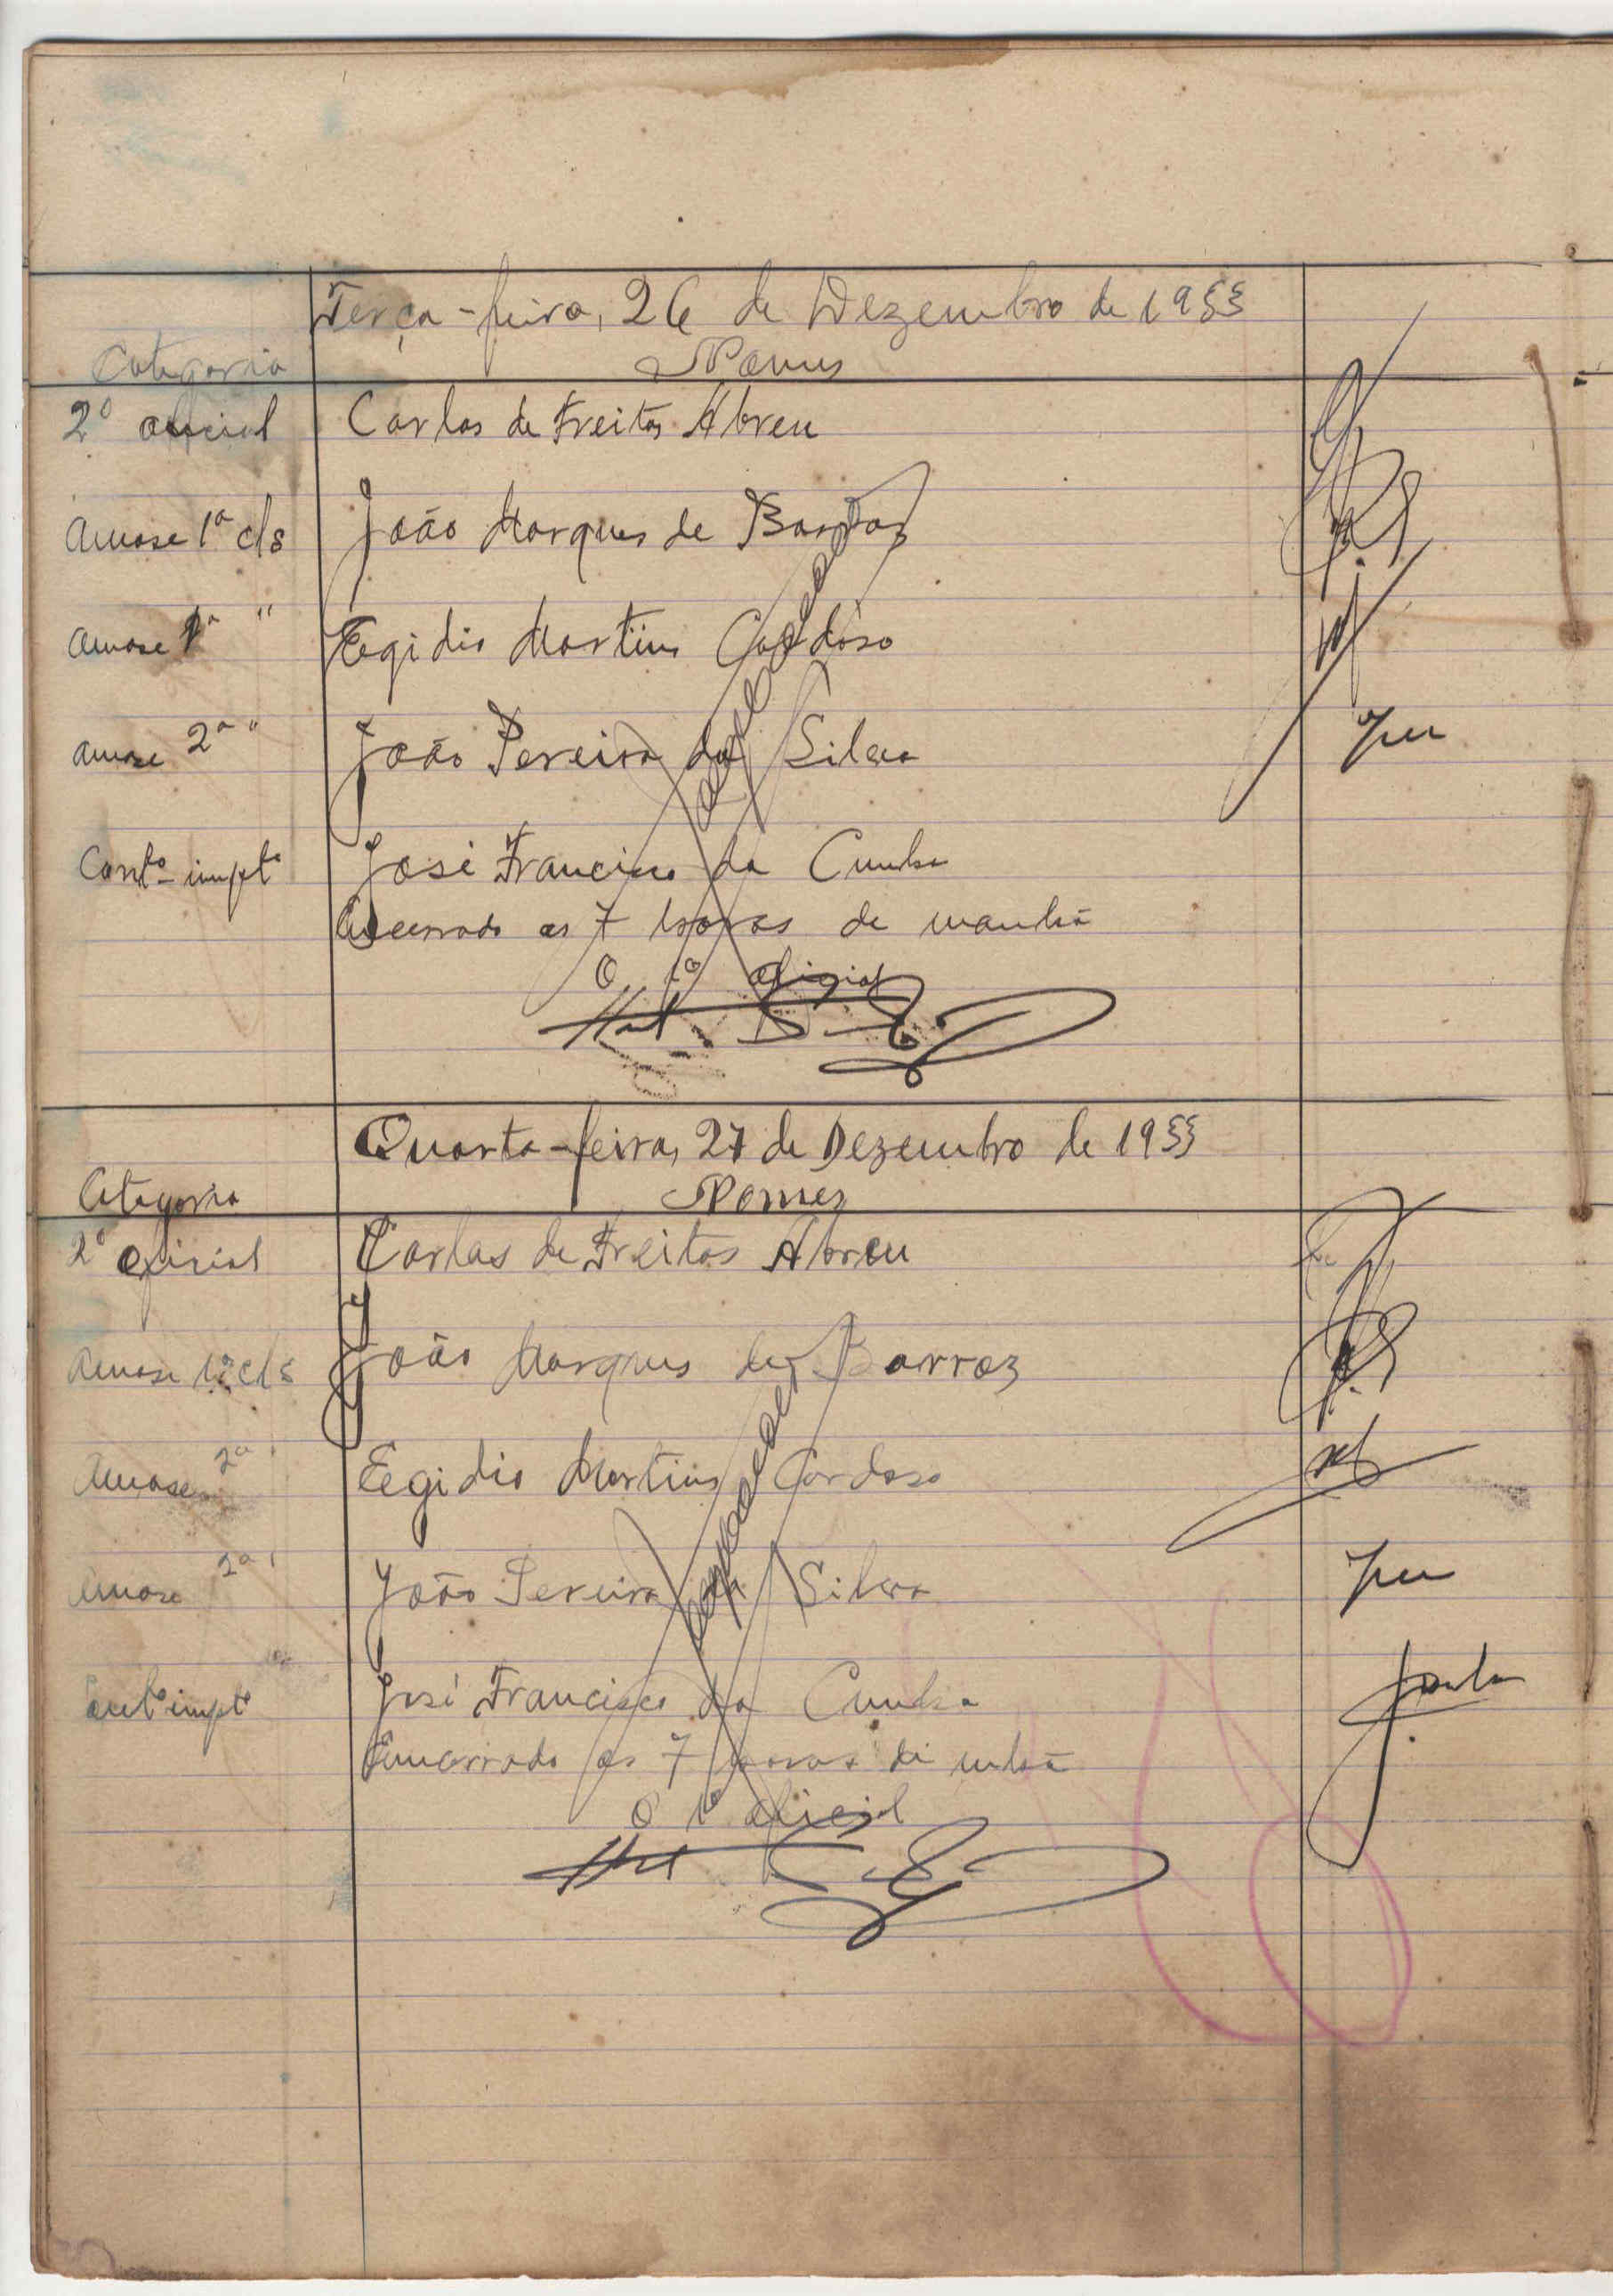 Terça-feira, 26 de Dezembro de 1955
Categoria Nomes
2º oficial Carlos de Freitas Abreu
Amose 1ª cls João Marques de Barros
Amose 1ª " Egidio Martins Cardoso
Amose 2ª " João Pereira da Silva
Contº impt° José Francisco da Cunha
Encerrado as 7 horas de manhã
O 1º oficial
Quarta-feira, 27 de Dezembro de 1955
Categoria Nomes
2º oficial Carlos de Freitas Abreu
Amose 1ª cls João Marques de Barros
Amose 2ª " Egidio Martins Cardoso
Amose 2ª " João Pereira Silva
Contº impt° José Francisco da Cunha
Encerrado as 7 horas de mhã
O 1º oficial